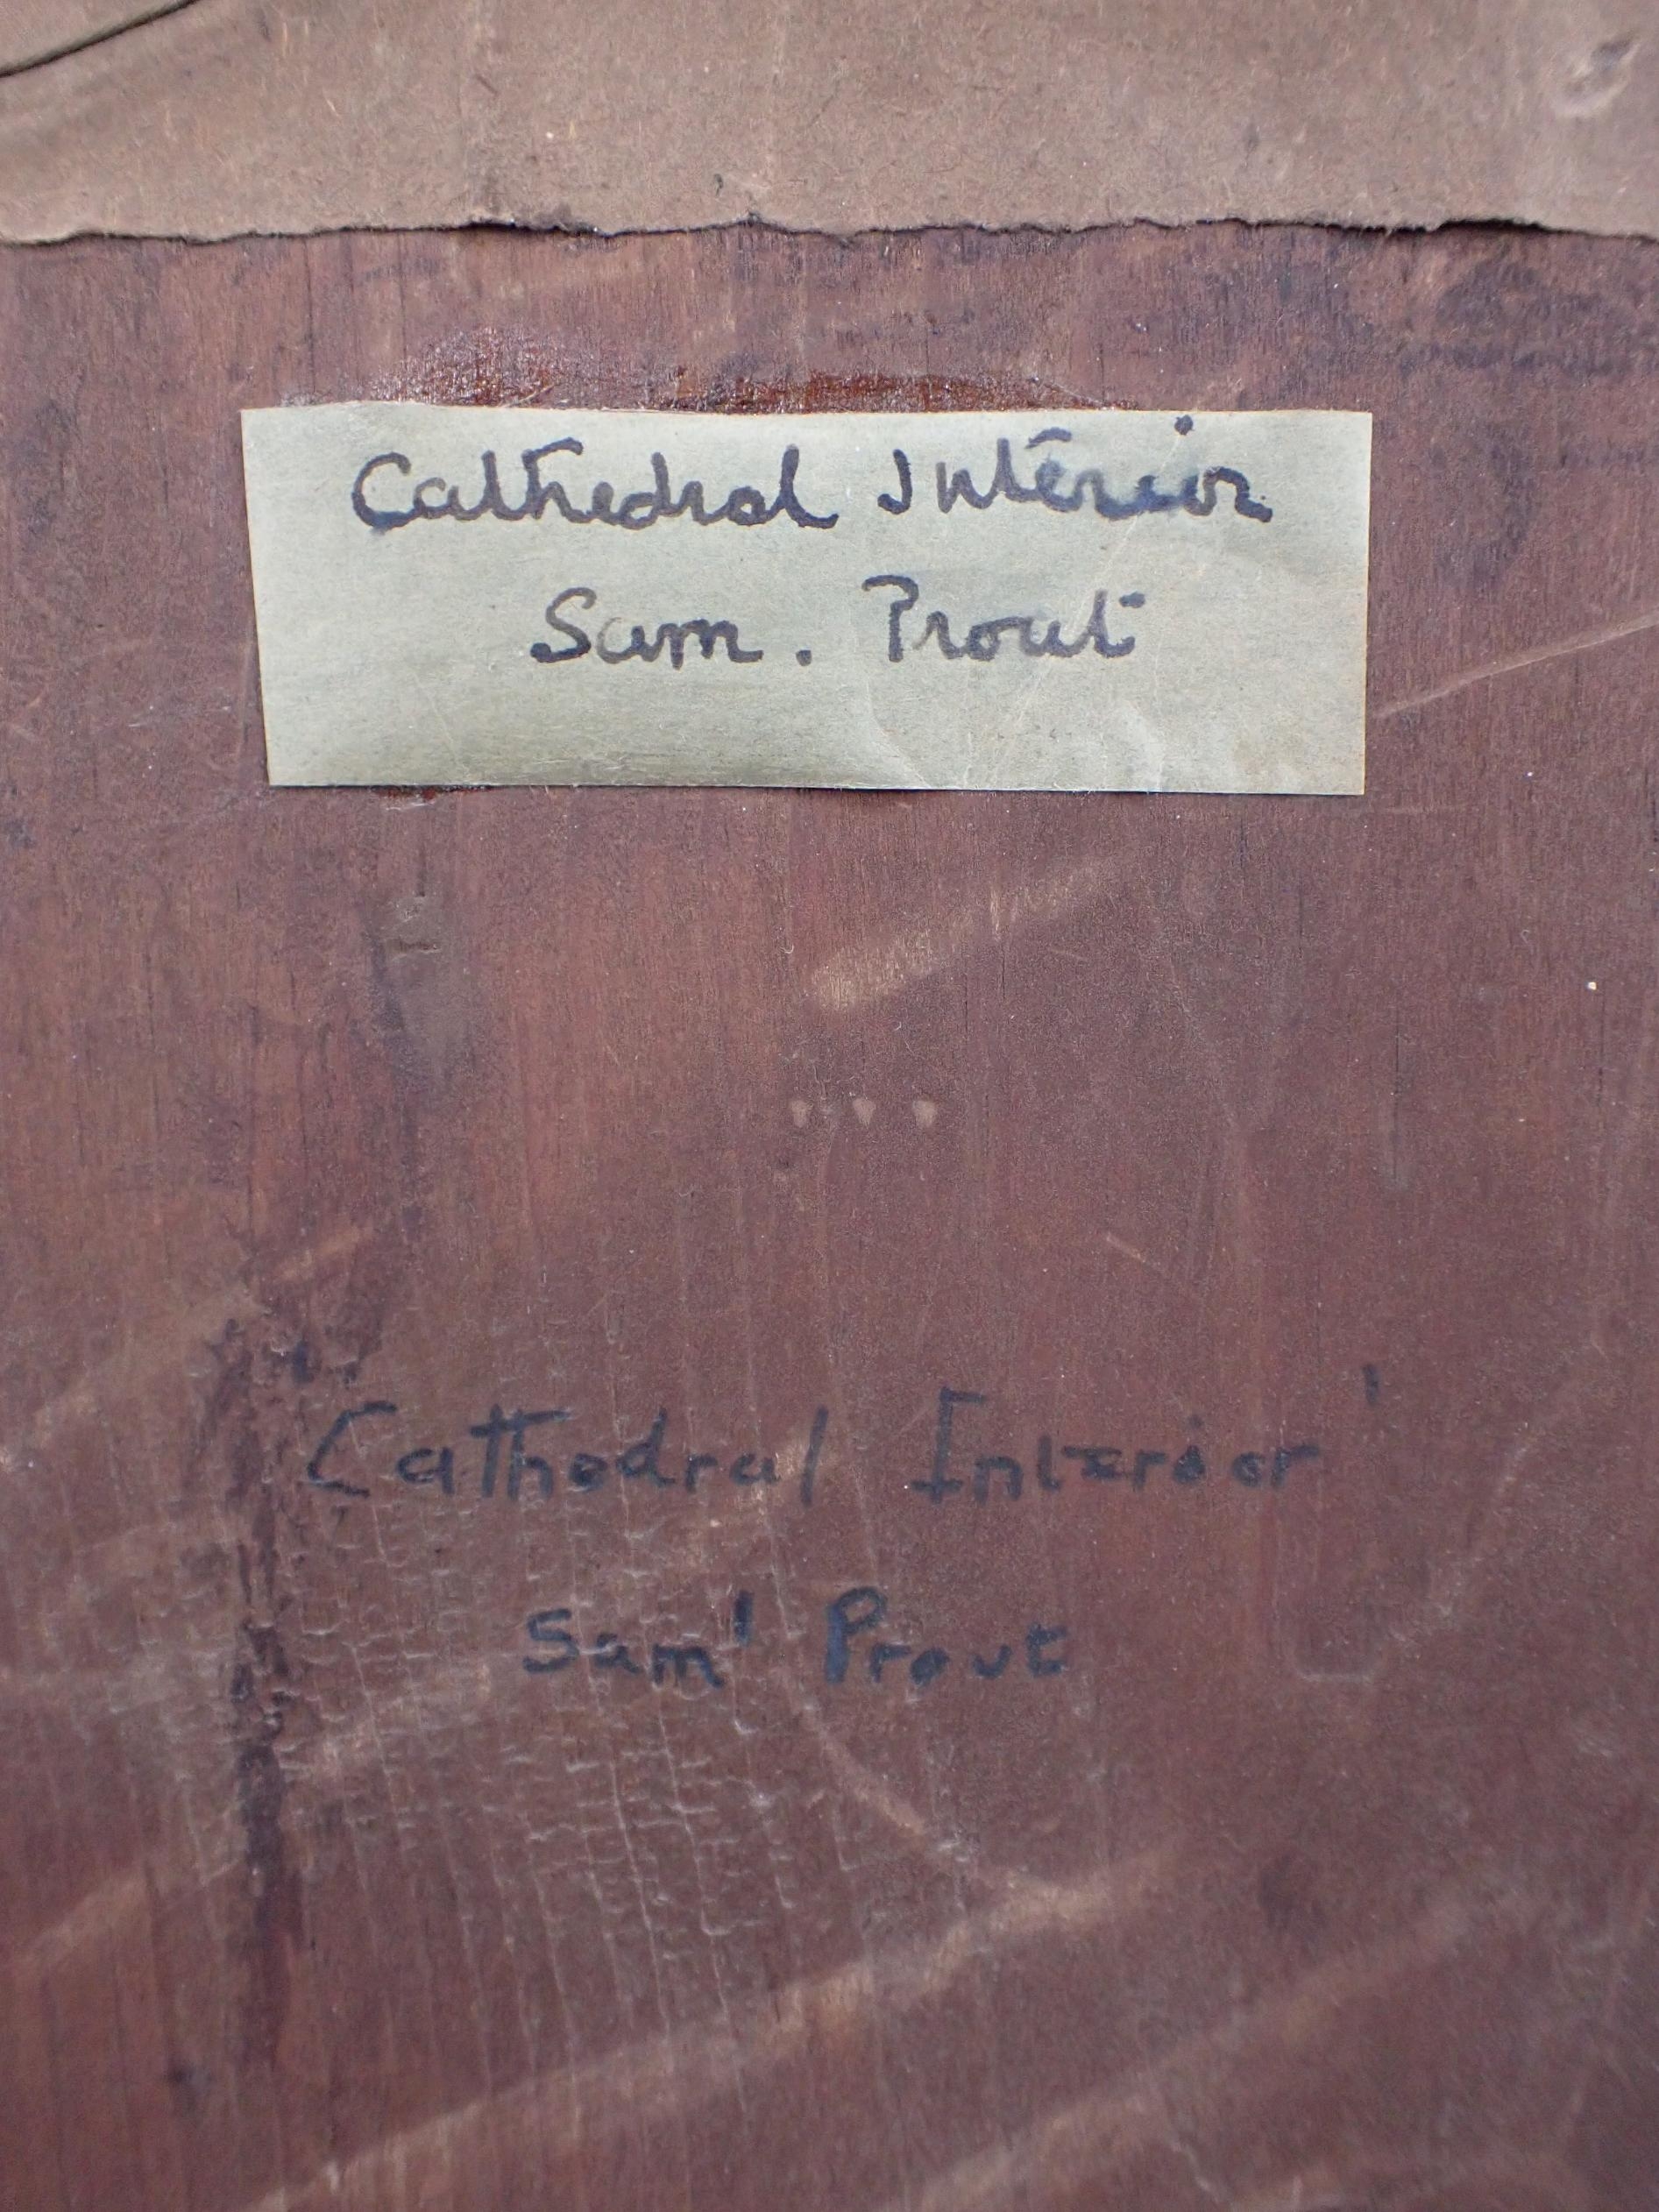 Cathedral Interior
Sam. Prout
Cathedral Interior'
Sam' Prout